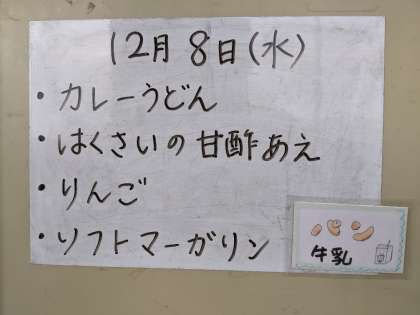 12月8日(水)
・カレーうどん
・はくさいの甘酢あえ
・りんご
・ソフトマーガリン
パン
牛乳